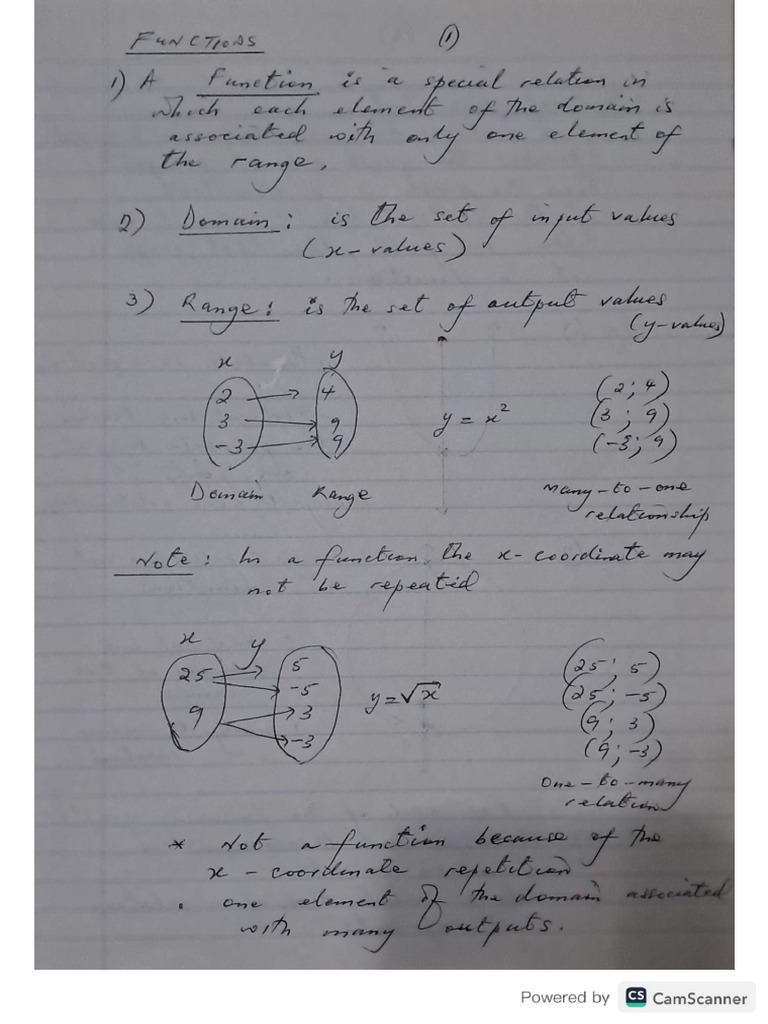 FUNCTIONS (1)
1) A Function is a special relation in
which each element of the domain is
associated with only one element of
the range.
2) Domain: is the set of input values
(x-values)
3) Range: is the set of output values
(y-values)
x y
2 4
3 9
-3 9
y = x²
(2; 4)
(3; 9)
(-3; 9)
Domain Range
many-to-one
relationship
Note: In a function the x-coordinate may
not be repeated
x y
25 5
-5
9 3
-3
y = √x
(25; 5)
(25; -5)
(9; 3)
(9; -3)
one-to-many
relation
* Not a function because of the
x-coordinate repetition
. one element of the domain associated
with many outputs.
Powered by CS CamScanner